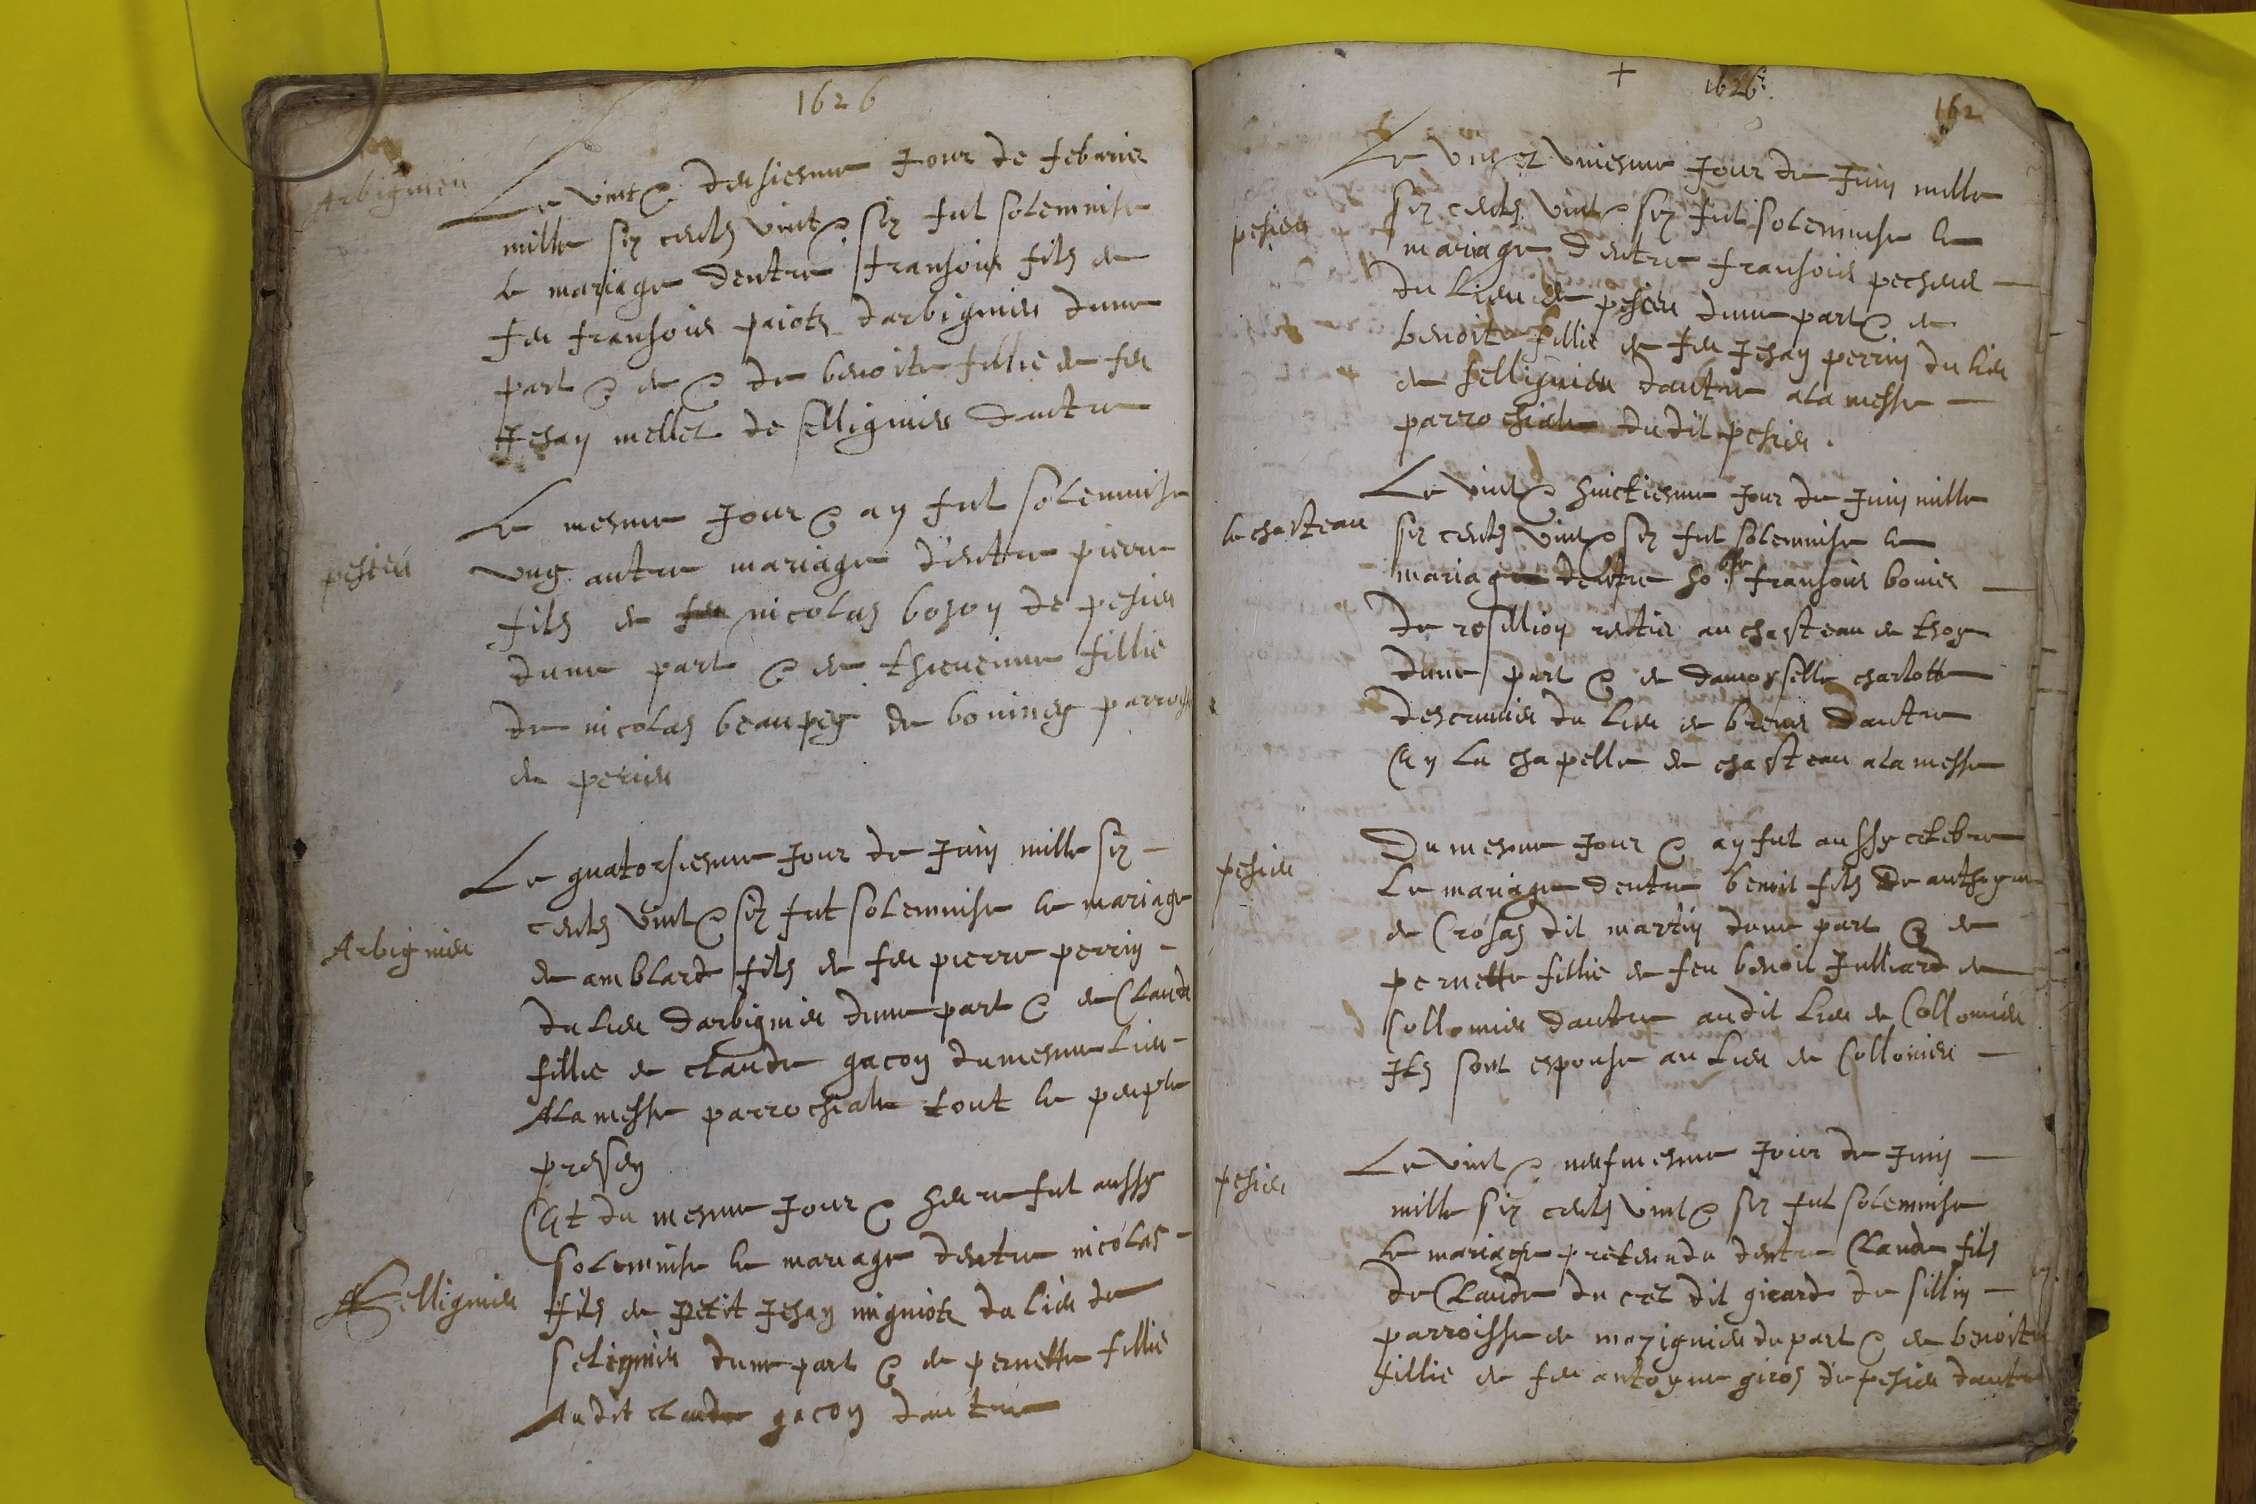 1626
Arbignieu
Le vint & deusiesme Jour de febvrier
mille six cents vint & six fut solemnise
le mariage dentre fransois fils de
feu fransois paiots darbignieu dune
part & de & de benoite fillie de feu
Jehan mellet de sellignieu dautre
pesieu
Le mesme Jour & an fut solemnise
ung autre mariage dentre pierre
fils de feu nicolas boson de pesieu
dune part & de thievenne fillie
de nicolas beaupey de bovines parroisse
de perieu
Arbignieu
Le quatorsiesme Jour de Juin mille six
cents vint & six fut solemnise le mariage
de amblard fils de feu pierre perrin
du lieu darbignieu dune part & de Claude
fillie de claude gacon du mesme lieu
A la messe parrochiale tout le peuple
presen
Et du mesme Jour & heure fut aussy
Sellignieu
solemnise le mariage dentre nicolas
fils de petit Jehan migniots du lieu de
selignieu dune part & de pernette fillie
Audit claude gacon dautre
+
1626.
162
pesieu
Le vint et uniesme Jour de Juin mille
six cents vint & six fut solemnise le
mariage dentre fransois pecheus
du lieu de pesieu dune part & de
benoite fillie de feu Jehan perrin du lieu
de sellignieu dautre a la messe
parrochiale dudit pesieu.
le chasteau
Le vint & huictiesme Jour de Juin mille
six cents vint & six fut solemnise le
mariage dentre ho ble fransois bovier
de rosillion rentier au chasteau de thoy
dune part & de damoyselle charlotte
descrivieu du lieu de brens dautre
En la chapelle de chasteau a la messe
pesieu
Du mesme Jour & an fut aussy celebre
Le mariage dentre benoit fils de anthoyne
de Crosas dit martin dune part & de
pernette fillie de feu benoit Julliard de
Collomieu dautre audit lieu de Collomieu
Ils sont espouse au lieu de Collomieu
pesieu
Le vint & neufmesme Jour de Juin
mille six cents vint & six fut solemnise
Le mariage pretendu dentre Claude fils
de Claude du cret dit girard de sillin
parroisse de magignieu du part & de benoite
fillie de feu antoyne giros de pesieu dautre